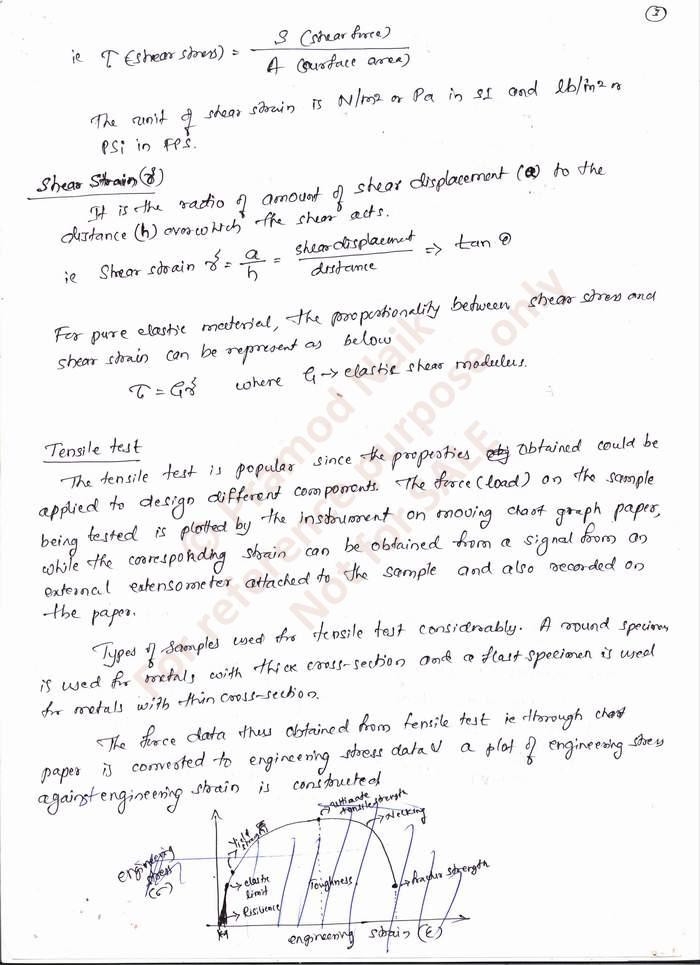 3
ie τ (shear stress) = S (shear force) / A (surface area)
The unit of shear strain is N/m2 or Pa in SI and lb/in2 or
PSi in FPS.
Shear Strain(γ)
It is the radio of amount of shear displacement (a) to the
distance (h) over which the shear acts.
ie Shear strain γ = a/h = shear displacement / distance => tan θ
For pure elastic material, the proportionality between shear stress and
shear strain can be represent as below
τ = Gγ where G → elastic shear modulus.
Tensile test
The tensile test is popular since the properties obtained could be
applied to design different components. The force (load) on the sample
being tested is plotted by the instrument on moving chart graph paper,
while the corresponding strain can be obtained from a signal from an
external extensometer attached to the sample and also recorded on
the paper.
Types of samples used for tensile test considerably. A round specimen
is used for metals with thick cross-section and a flast specimen is used
for metals with thin cross-section.
The force data thus obtained from tensile test ie through chart
paper is converted to engineering stress data & a plot of engineering stress
against engineering strain is constructed
ultimate
tensile strength
→ Necking
Yield
strength
engineering
stress
(σ)
→ elastic
limit
Toughness
→ fractur strength
→ Risilience
engineering strain (ε)
© Pramod Naik
For reference purpose only
Not for SALE